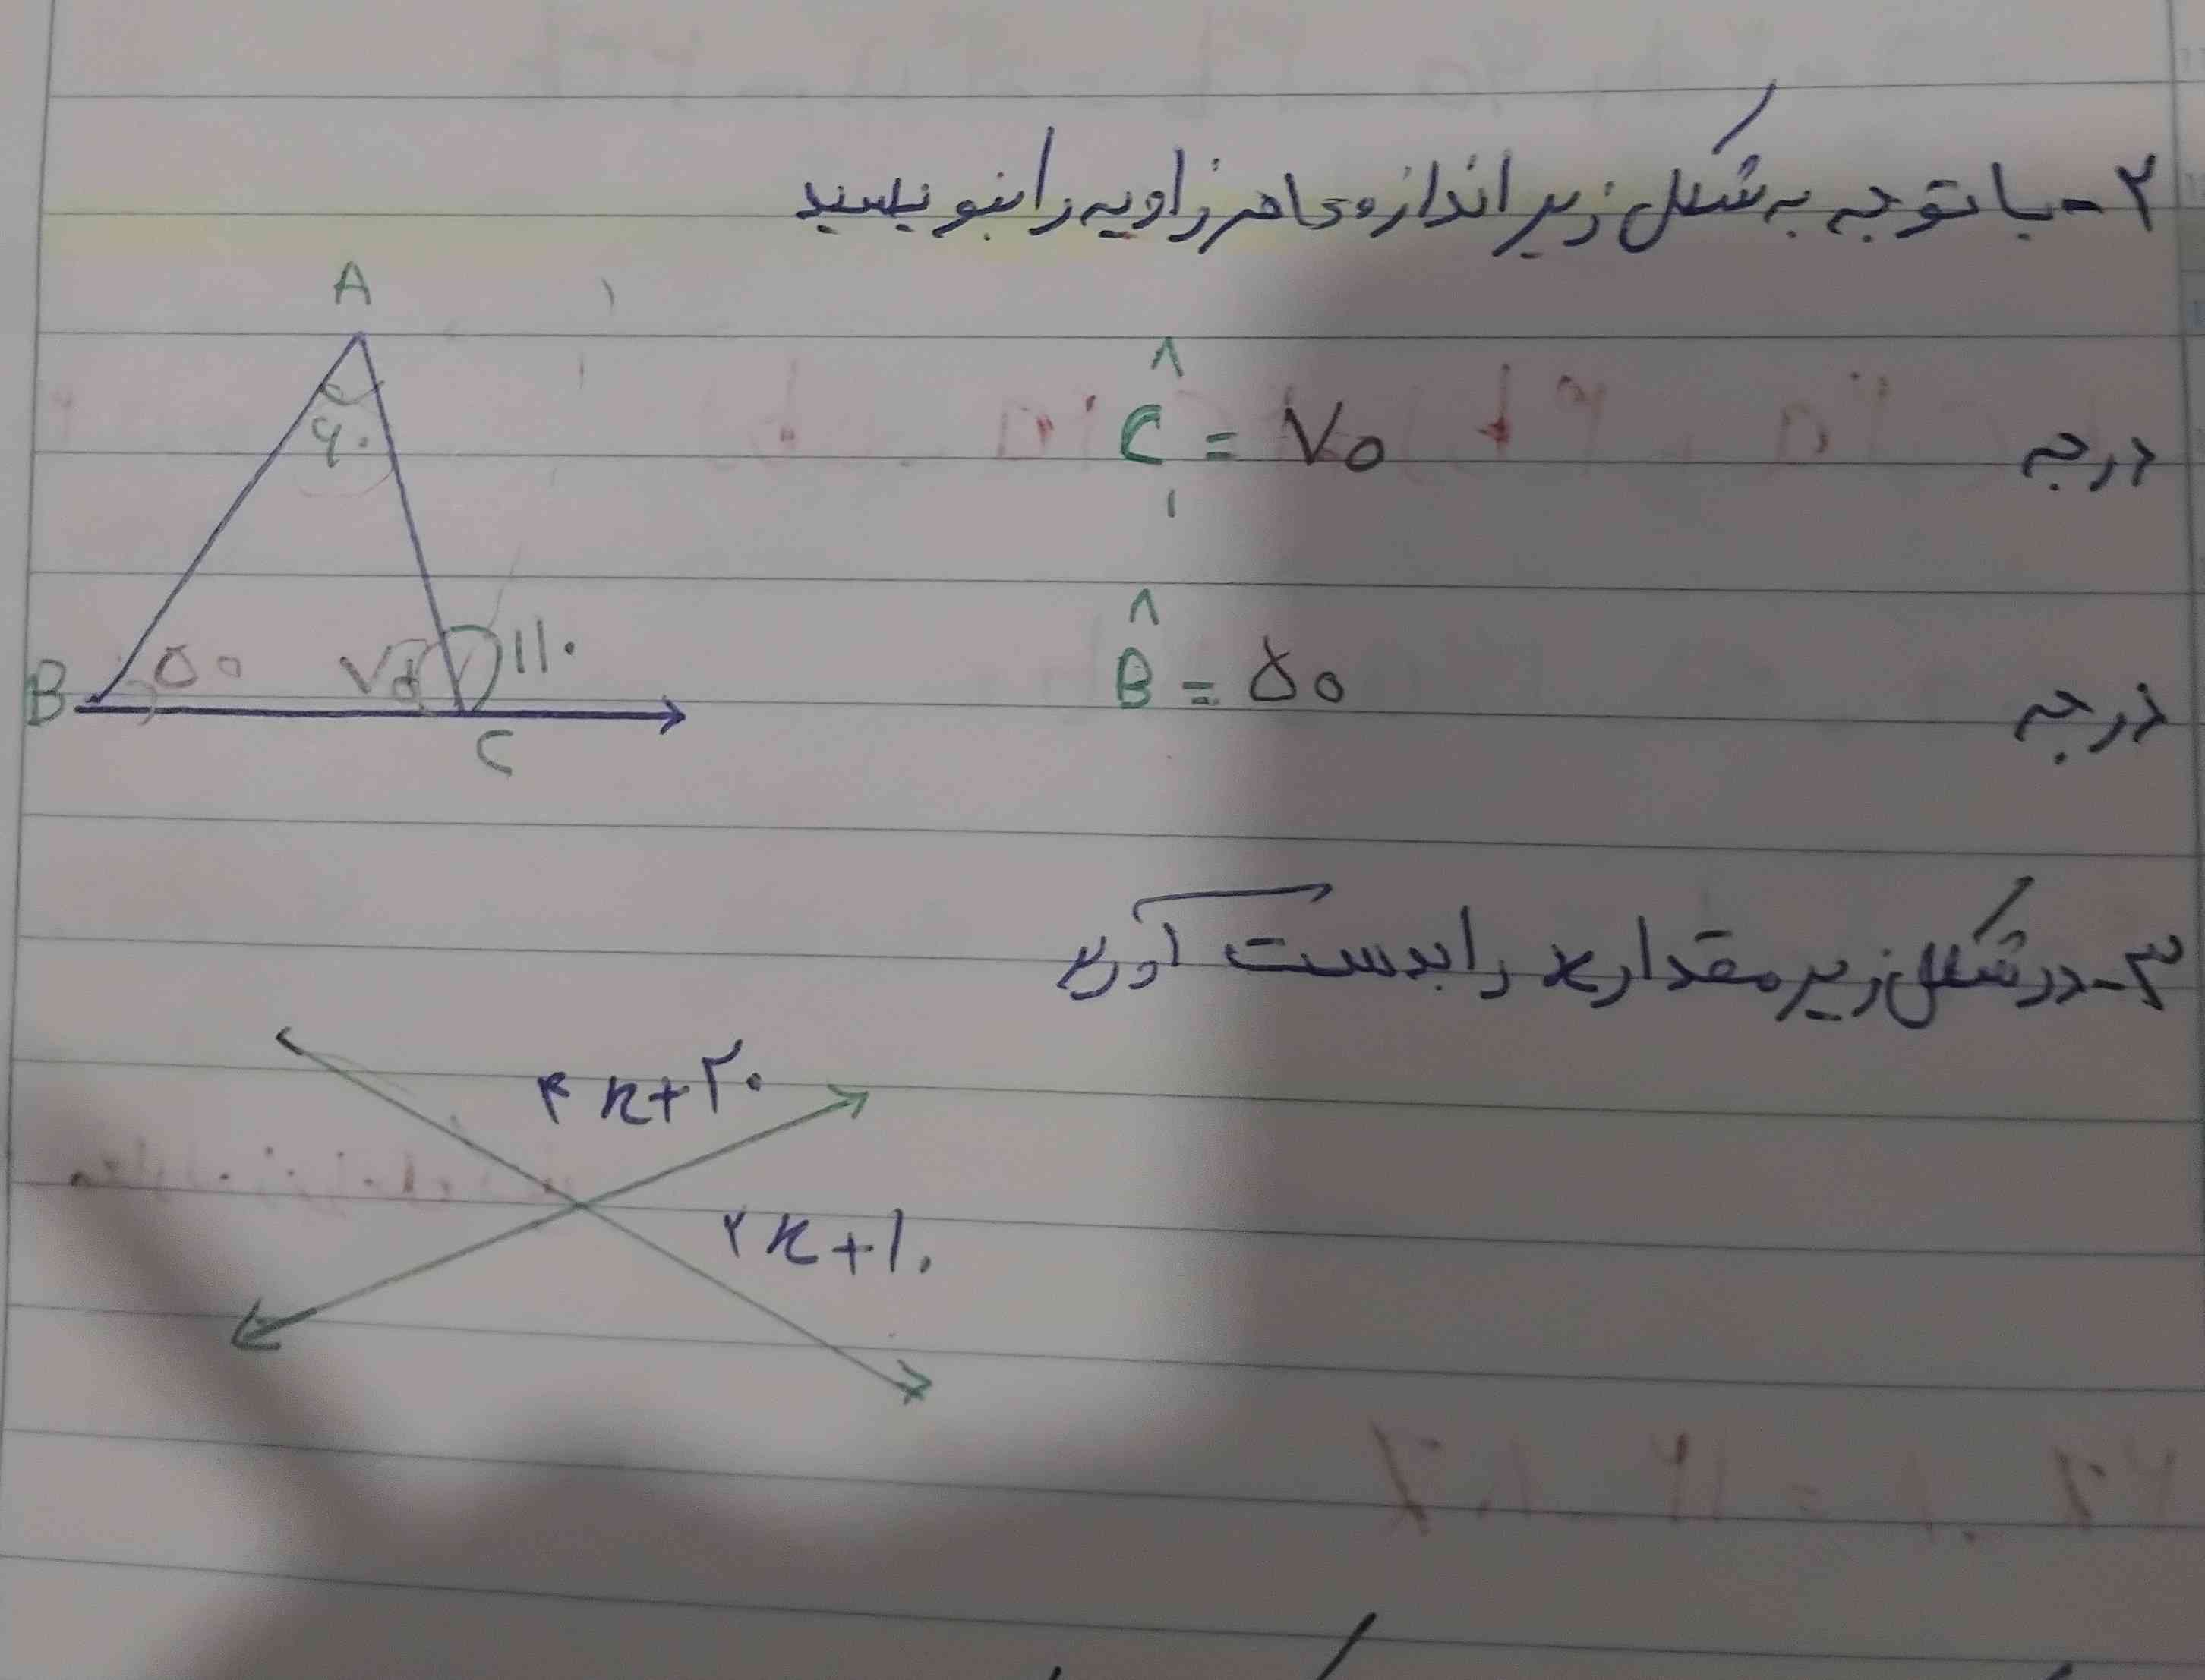 ۲- با توجه به شکل زیر اندازه‌ی هر زاویه را بنویسید
A
۶۰
Ĉ۱ = ۷۰ درجه
B ۵۰ ۷۰ ۱۱۰
C
B̂ = ۵۰ درجه
۳- در شکل زیر مقدار x را بدست آورید
x+۲۰
۲x+۱۰